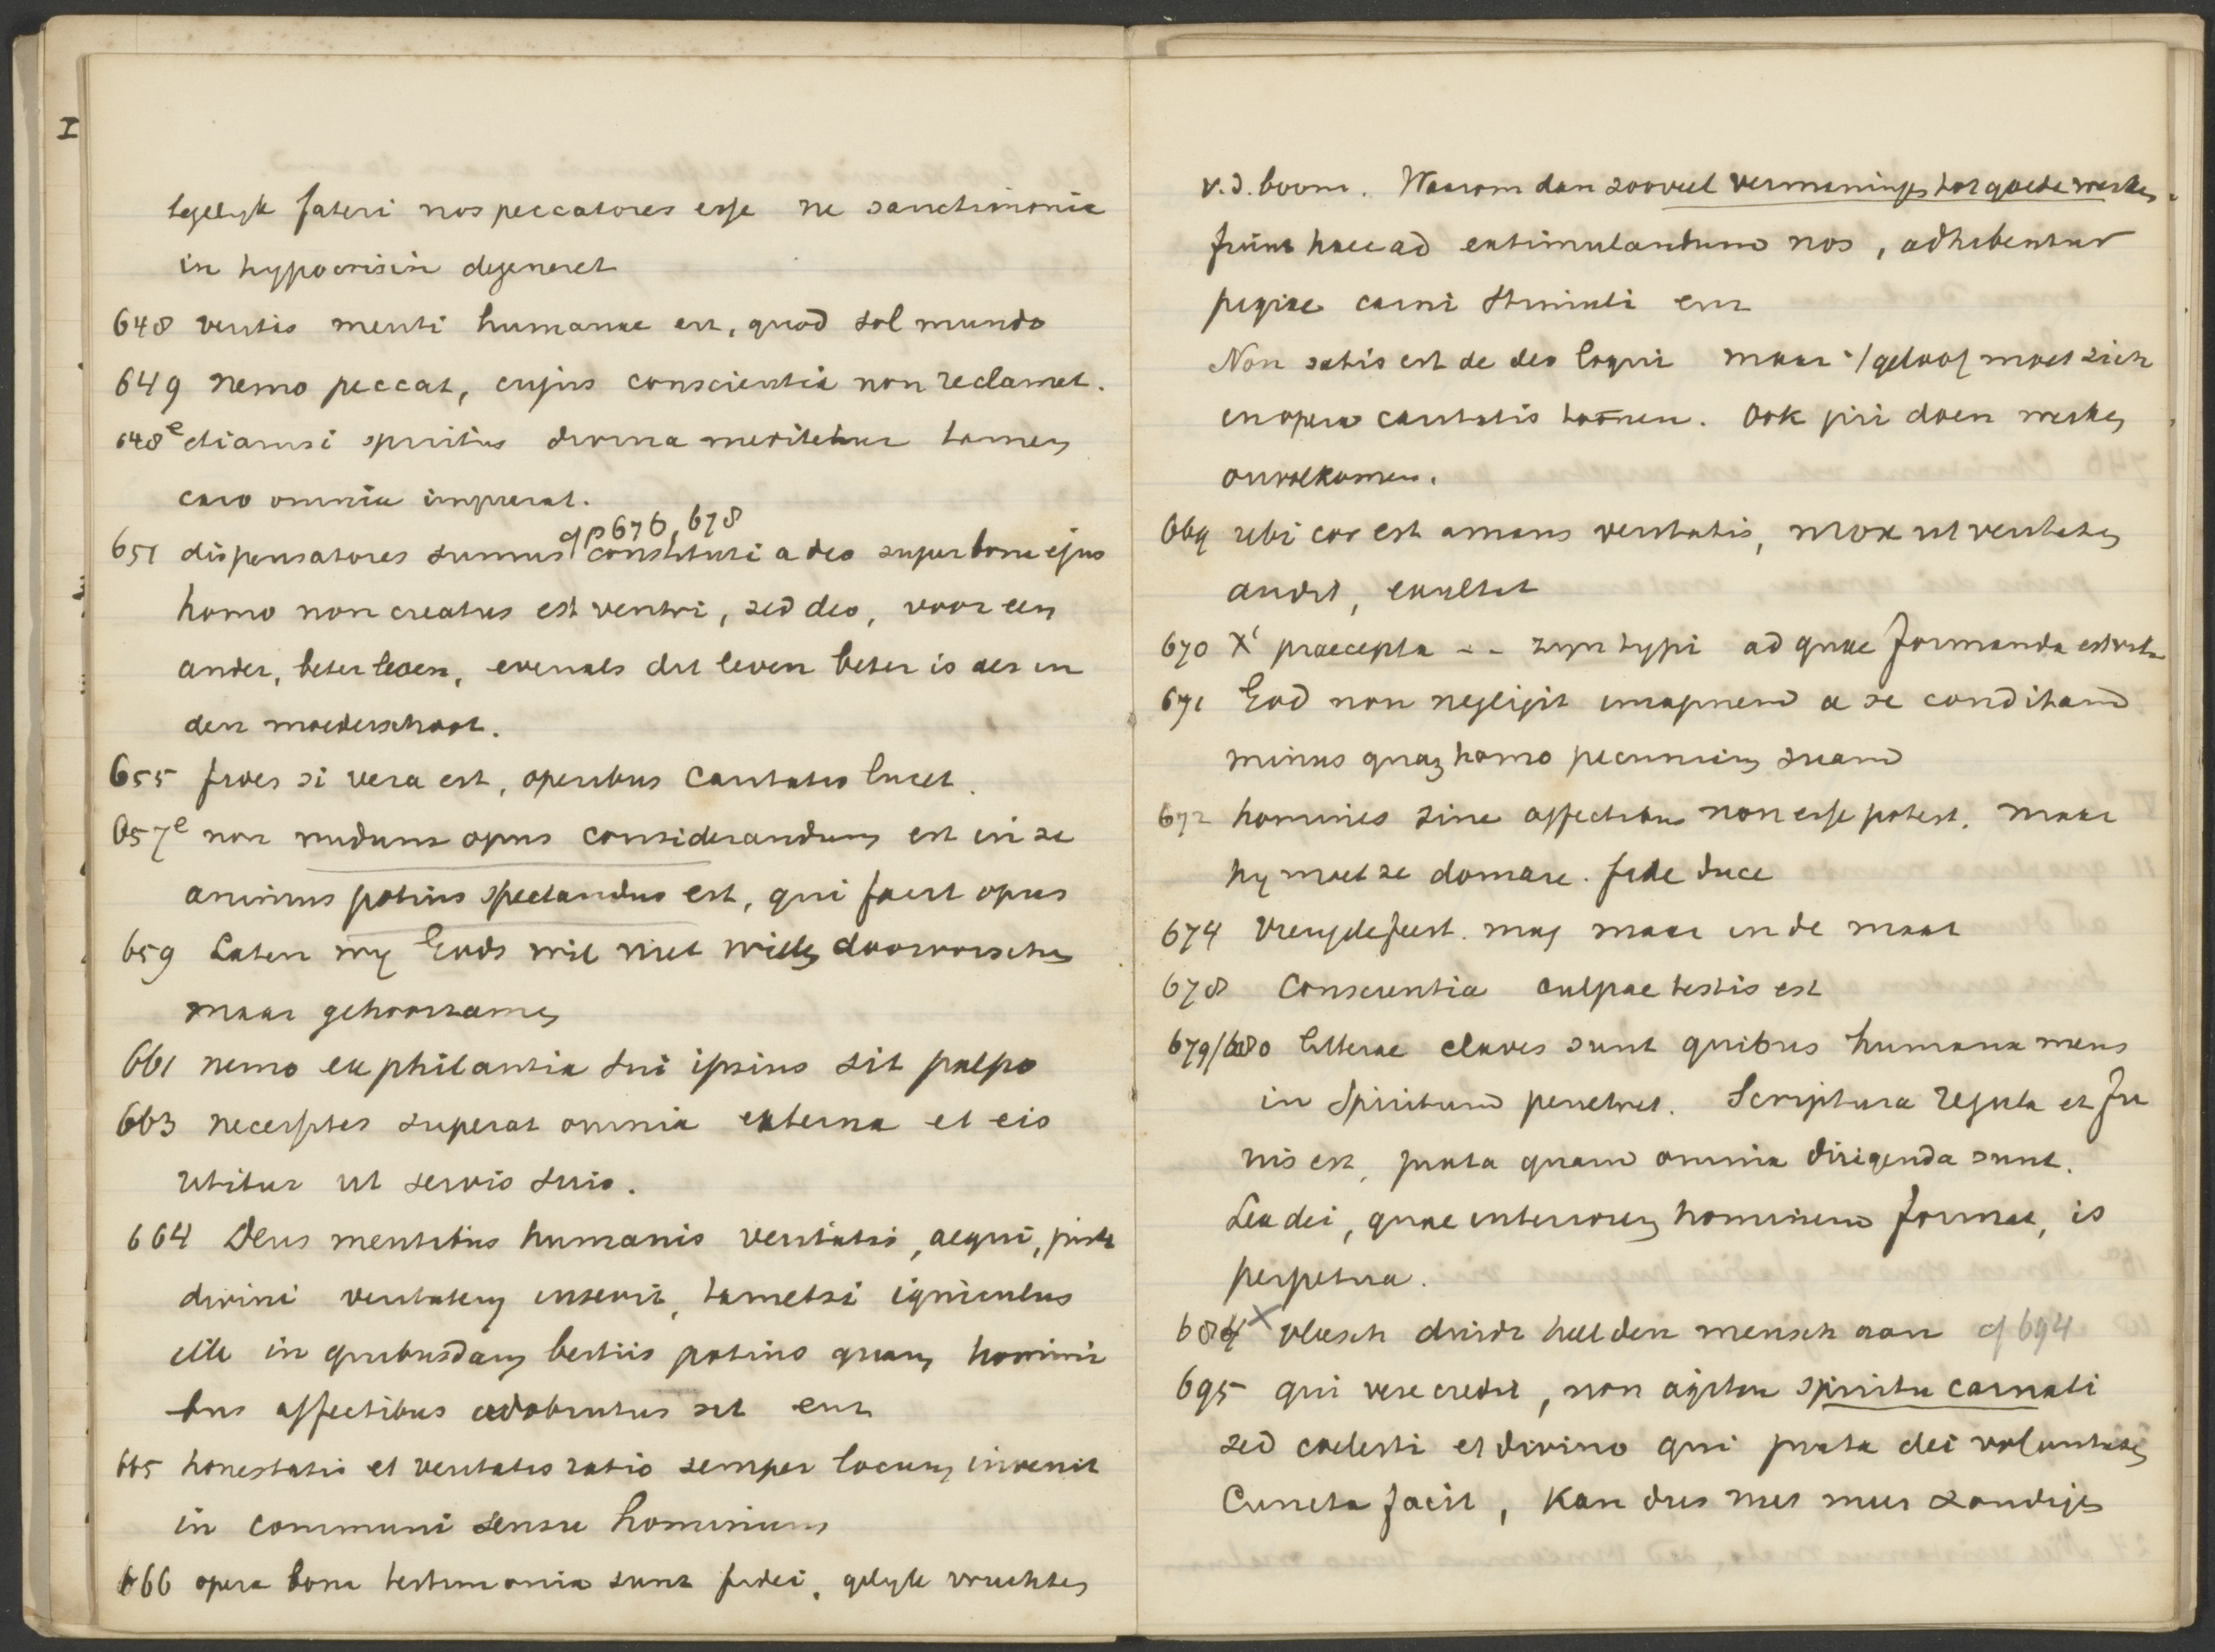 I
tegelyk fateri nos peccatores esse ne sanctimonia
in hypocrisin degeneret
648 veritas menti humanae est, quod sol mundo
649 nemo peccat, cujus conscientia non reclamet.
648e etiamsi spiritus divina meditetur tamen
caro omnia impurat.
cf p 676, 678
651 dispensatores sumus constituti a deo super bona ejus
homo non creatus est ventri, sed deo, voor een
ander, beter leven, evenals dit leven beter is als in
den moederschoot.
655 fides si vera est, operibus caritatis lucet.
657e non nudum opus considerandum est in se
animus potius spectandus est, qui facit opus
659 Laten wy Gods wil niet willen doorvorschen
maar gehoorzamen
661 nemo ex philautia sui ipsius sit palpo
663 necessitas superat omnia externa et eis
utitur ut servis suis.
664 Deus mentibus humanis veritatis, aequi, justi
divini veritatem inserit, tametsi igniculus
ille in quibusdam bestiis potius quam homini
bus affectibus adobrutus sit enz
665 honestatis et veritatis ratio semper locum invenit
in communi sensu hominum
666 opera bona testimonia sunt fidei, gelyk vruchten
v. d. boom. Waarom dan zooveel vermaningen tot goede werken.
fiunt haec ad extimulandum nos, adhibentur
pigrae carni stimuli enz
Non satis est de deo loqui maar 't geloof moet zich
in opera caritatis toonen. Ook pii doen werken
onvolkomen.
669 ubi cor est amans veritatis, mox ut veritatem
audit, exultat
670 Xi praecepta -- zyn typi ad quae formanda est vita
671 God non negligit imaginem a se conditam
minus quam homo pecuniam suam
672 homines sine affectibus non esse potest. maar
hy moet se domare. fide duce
674 vreugdefeest. mag maar in de maat
678 Conscientia culpae testis est
679/680 litterae claves sunt quibus humana mens
in Spiritum penetret. Scriptura regula et fu
nis est, juxta quam omnia dirigenda sunt.
Lex dei, quae interiorem hominem format, is
perpetua.
684 x vleesch duidt heel den mensch aan cf 694
695 qui vere credit, non agitur spiritu carnali
sed coelesti et divino qui juxta dei voluntatem
Cuncta facit, kan dus niet meer zondigen